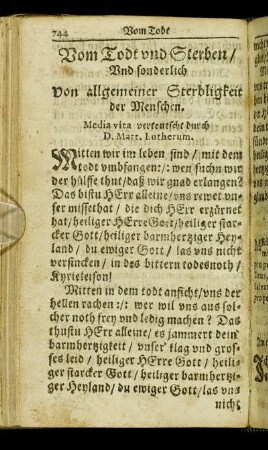 744 Vom Todt
Vom Todt vnd Sterben /
Vnd sonderlich
von allgemeiner Sterbligkeit
der Menschen.
Media vita verteutscht durch
D. Mart. Lutherum.
Mitten wir im leben sind / mit dem
todt vmbfangen :/: wen suchn wir
der hülffe thut / daß wir gnad erlangen?
Das bistu HErr alleine / vns rewet vn-
ser missethat / die dich HErr erzürnet
hat / heiliger HErre Gott / heiliger star-
cker Gott / heiliger barmhertziger Hey-
land / du ewiger Gott / las vns nicht
versincken / in des bittern todesnoth /
Kyrieleison!
Mitten in dem todt anficht / vns der
hellen rachen :/: wer wil vns aus sol-
cher noth frey vnd ledig machen? Das
thustu HErr alleine / es jammert dein
barmhertzigkeit / vnser klag vnd gros-
ses leid / heiliger HErre Gott / heili-
ger starcker Gott / heiliger barmhertzi-
ger Heyland / du ewiger Gott / las vns
nicht